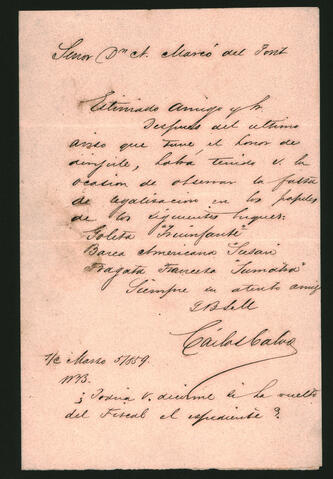 Señor Dn A. Marcó del Pont
Estimado Amigo y Sr
Despues del ultimo
aviso que tuve el honor de
dirijirle, habrá tenido V. la
ocasion de observar la falta
de legalizacion en los papeles
de los siguientes buques:
Goleta "Triunfante"
Barca Americana "Susan"
Fragata Francesa "Sumatra"
Siempre su atento amigo
Carlos Calvo
S/C Marzo 5/1859
NB.
¿Podria V. decirme si ha vuelto
del Fiscal el espediente?